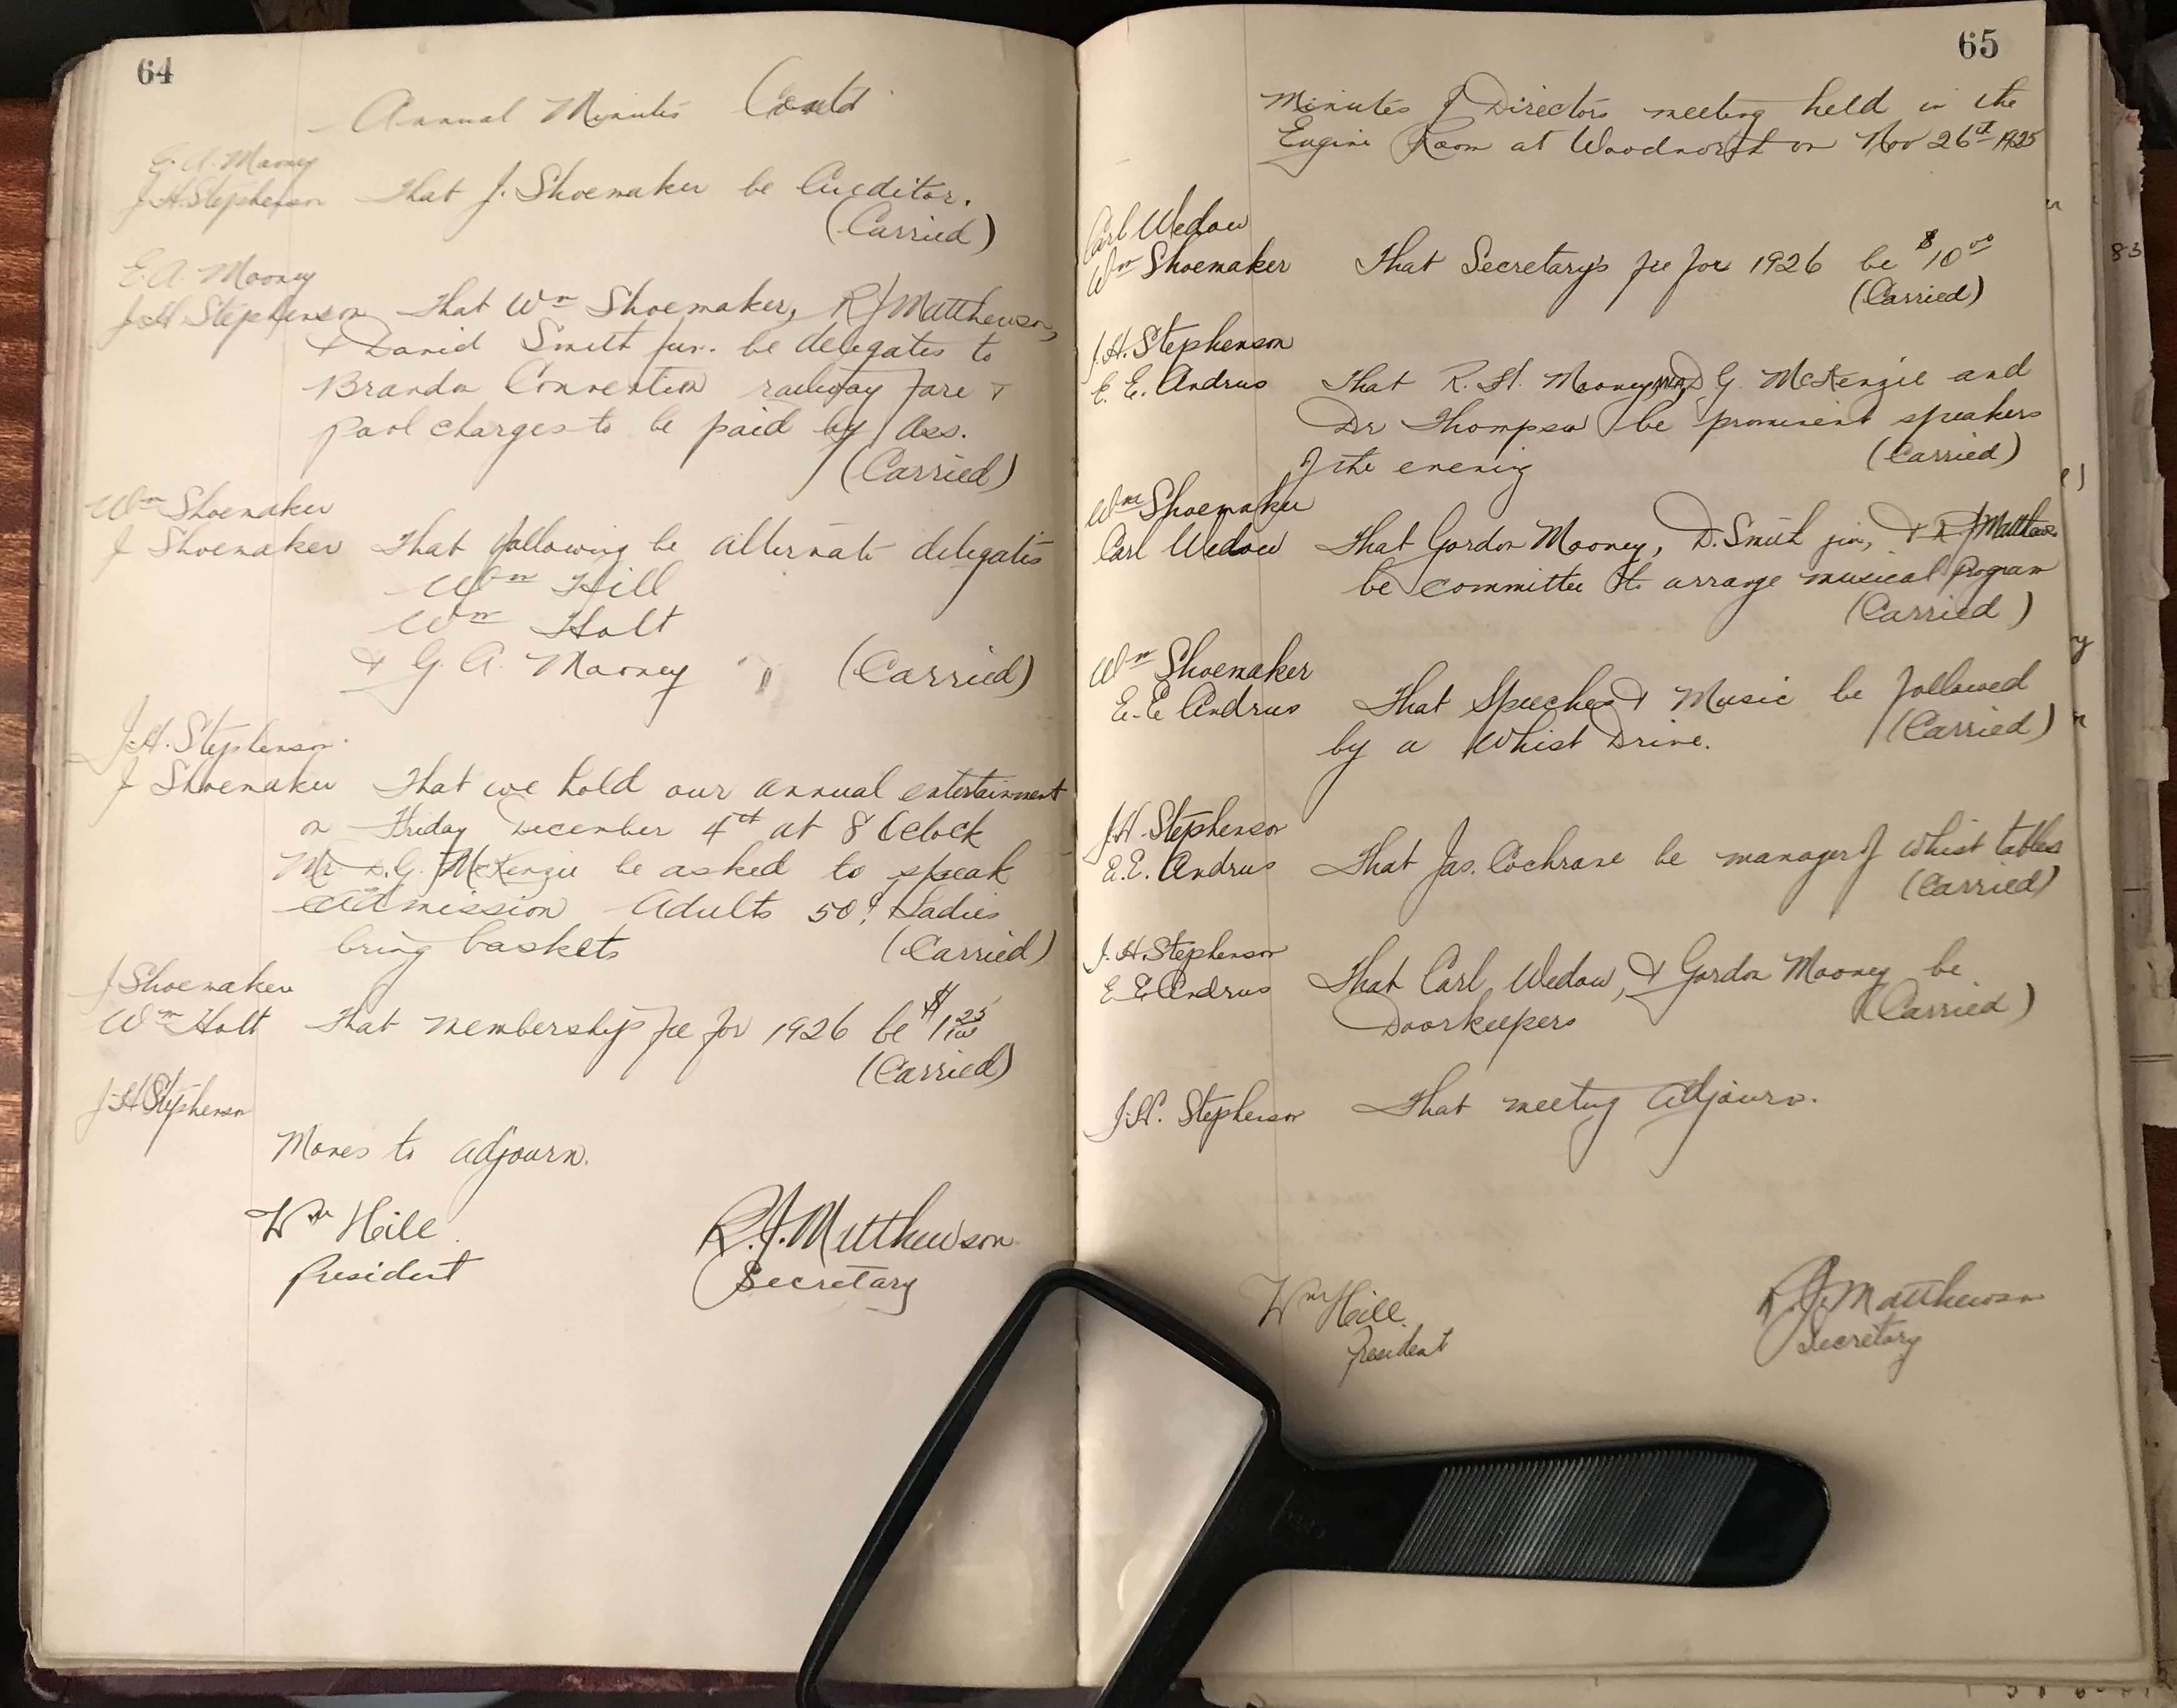 64
Annual Minutes Contd
G. A. Mooney
J. H. Stephenson That J. Shoemaker be Auditor.
(Carried)
E. A. Mooney
J. H. Stephenson That Wm Shoemaker, R J Matthewson,
& David Smith jun. be delegates to
Brandon Convention railway fare &
pool charges to be paid by Ass.
(Carried)
Wm Shoemaker
J Shoemaker That following be alternate delegates
Wm Hill
Wm Holt
& G. A. Mooney (Carried)
J. H. Stephenson
J Shoemaker That we hold our annual entertainment
on Friday December 4th at 8 Oclock
Mr D. G. McKenzie be asked to speak
Admission Adults 50¢ Ladies
bring baskets (Carried)
J Shoemaker
Wm Holt That membership fee for 1926 be $1 25/100
(Carried)
J H Stephenson
Moves to adjourn.
Wm Hill R. J. Matthewson
President Secretary
65
Minutes of Directors meeting held in the
Engine Room at Woodnorth on Nov 26th 1925
Carl Wedow
Wm Shoemaker That Secretary's fee for 1926 be $10 00
(Carried)
J. H. Stephenson
E. E. Andrus That R. H. Mooney, D G. McKenzie and
Dr Thompson be prominent speakers
of the evening (Carried)
Wm Shoemaker
Carl Wedow That Gordon Mooney, D. Smith jun, & R J Matthewson
be committee to arrange musical program
(Carried)
Wm Shoemaker
E. E Andrus That Speeches & Music be followed
by a Whist Drive. (Carried)
J. H. Stephenson
E. E. Andrus That Jas. Cochrane be manager of whist tables
(Carried)
J. H. Stephenson
E. E. Andrus That Carl Wedow, & Gordon Mooney be
Doorkeepers (Carried)
J. H. Stephenson That meeting adjourn.
Wm Hill. R. J. Matthewson
President Secretary